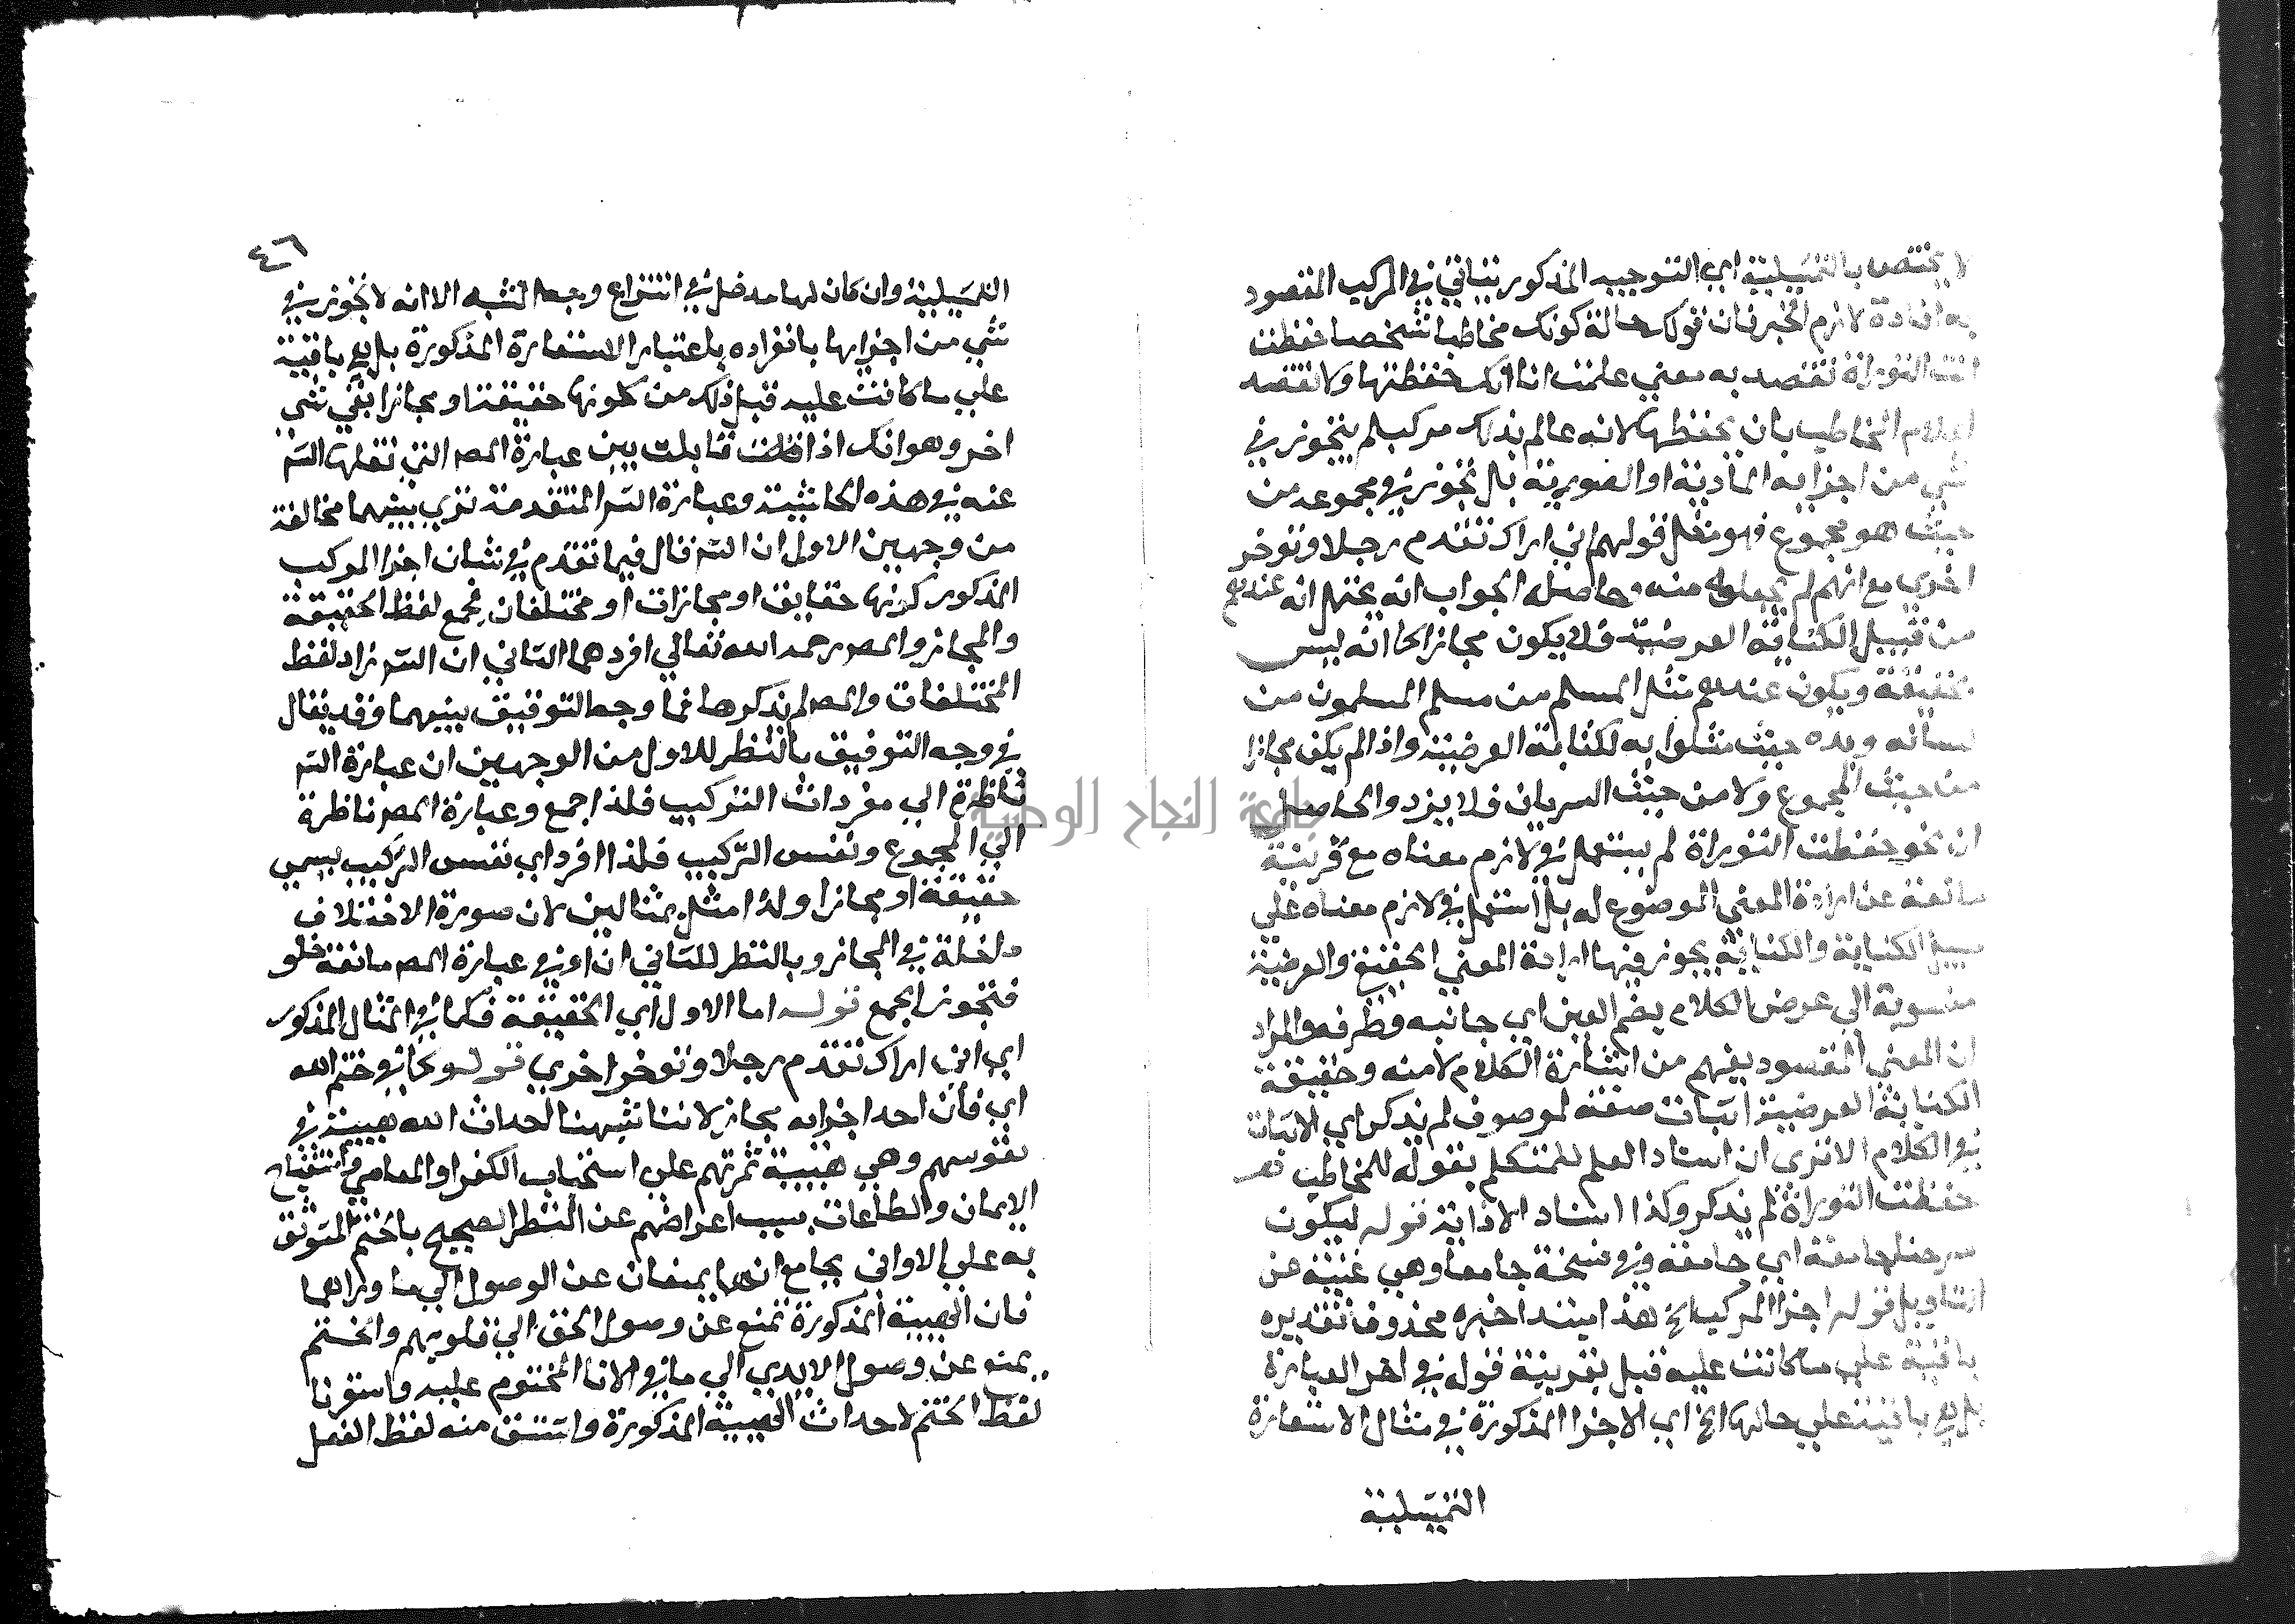 لا يختص بالتمثيلية اي التوجيه المذكور يتاتي في المركب المقصود
به افادة لازم الخبر فان قولك حالة كونك مخاطبا شخصا حفظت
انت التوراة تقصد به معني علمت انا انك حفظتها ولا تقصد
اعلام المخاطب بان يحفظها لانه عالم بذلك مركب لم يتجوز في
شي من اجزايه المادية او الصورية بل تجوز في مجموعه من
حيث هو مجموع فهو مثل قولهم اني اراك تقدم رجلا وتوخر
اخري مع انهم لم يجعلوه منه وحاصل الجواب انه يحتمل انه عندهم
من قبيل الكناية العرضية فلا يكون مجازا كما انه ليس
حقيقة ويكون عندهم مثل المسلم من سلم المسلمون من
لسانه ويده حيث مثلوا به لكناية العرضية واذا لم يكن مجازا
من حيث المجموع ولا من حيث السريان فلا يرد والحاصل
ان نحو حفظت التوراة لم يستعمل في لازم معناه مع قرينة
مانعة عن ارادة المعني الموضوع له بل استعمل في لازم معناه علي
سبيل الكناية والكناية يجوز فيها ارادة المعني الحقيقي والعرضية
منسوبة الي عرض الكلام بضم العين اي جانبه وطرفه والمراد
ان المعني المقسود يفهم من اشارة الكلام لا منه وحقيقة
الكناية العرضية اثبات صفة لموصوف لم يذكر اي الاثبات
في الكلام الا تري ان اسناد العلم للمتكلم بقوله للمخاطب
حفظت التوراة لم يذكر وكذا اسناد الاذاية قوله ليكون
جامعة اي جامعة وفي نسخة جامعا وهي غنية عن
التاويل قوله اجزا المركب الخ هذا مبتدا خبره محذوف تقديره
باقية علي ما كانت عليه قبل بقرينة قوله في اخر العبارة
بل هي باقية علي حالها الخ اي الاجزا المذكورة في مثال الاستعارة
التمثيلية
٤٦
التمثيلية وان كان لها مدخل في انتزاع وجه الشبه الا انه لا تجوز في
شي من اجزايها بانفراده باعتبار الاستعارة المذكورة بل هي باقية
علي ما كانت عليه قبل ذلك من كونها حقيقة او مجازا بقي شي
اخر وهو انك اذا قابلت بين عبارة المص التي نقلها الشر
عنه في هذه الحاشية وعبارة الشر المتقدمة تري بينهما مخالفة
من وجهين الاول ان الشر قال فيما تقدم في شان اجزا المركب
المذكور كونها حقايق او مجازات او مختلفات فجمع لفظ الحقيقة
والمجاز والمص رحمه الله تعالي افردهما الثاني ان الشر زاد لفظ
المختلفات والمص لم يذكرها فما وجه التوفيق بينهما وقد يقال
في وجه التوفيق بالنظر للاول من الوجهين ان عبارة الشر
ناظرة الي مفردات التركيب فلذا جمع وعبارة المص ناظرة
الي المجموع ونفس التركيب فلذا افرد اي نفس التركيب يسمي
حقيقة او مجازا ولذا مثل بمثالين لان صورة الاختلاف
داخلة في المجاز وبالنظر للثاني ان او في عبارة المص مانعة خلو
فتجوز الجمع قوله اما الاول اي الحقيقة فكما في المثال المذكور
اي اني اراك تقدم رجلا وتوخر اخري قوله كما في ختم الله
اي فان احد اجزايه مجاز لاننا شبهنا احداث الله هيية في
نفوسهم وهي هيية تمرنهم علي استحباب الكفر والمعاصي واستقباح
الايمان والطاعات بسبب اعراضهم عن النظر الصحيح بالختم المتوثق
به علي الاواني بجامع انهما يمنعان عن الوصول الي ما وراهما
فان الهيية المذكورة تمنع عن وصول الحق الي قلوبهم والختم
يمنع عن وصول الايدي الي ما في الانا المختوم عليه واستعرنا
لفظ الختم لاحداث الهيية المذكورة واشتق منه لفظ الفعل
جامعة النجاح الوطنية